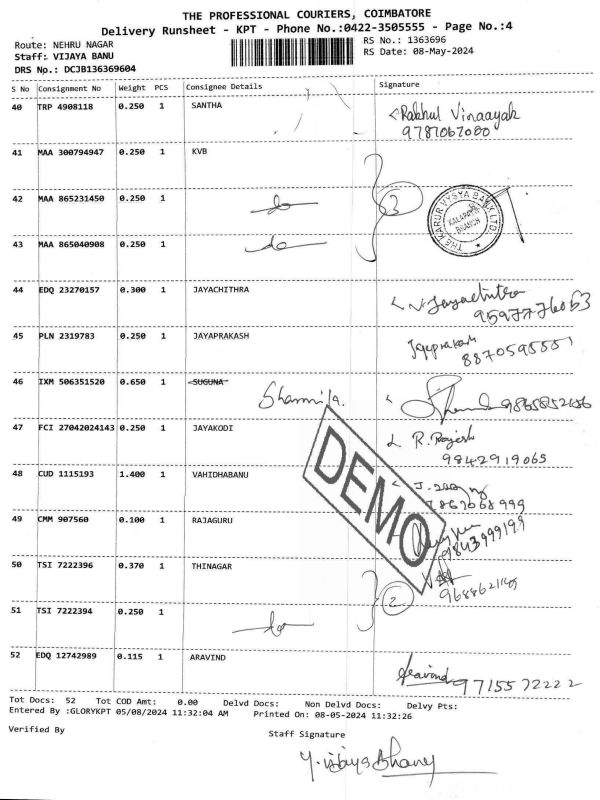 THE PROFESSIONAL COURIERS, COIMBATORE
Delivery Runsheet - KPT - Phone No.:0422-3505555 - Page No.:4
Route: NEHRU NAGAR
RS No.: 1363696
Staff: VIJAYA BANU
RS Date: 08-May-2024
DRS No.: DCJB136369604
S No Consignment No Weight PCS Consignee Details Signature
40 TRP 4908118 0.250 1 SANTHA Rakhul Vinaayak
9787067080
41 MAA 300794947 0.250 1 KVB
42 MAA 865231450 0.250 1 do 3
THE KARUR VYSYA BANK LTD. BRANCH
43 MAA 865040908 0.250 1 do
44 EDQ 23270157 0.300 1 JAYACHITHRA Jayachitra
9597776063
45 PLN 2319783 0.250 1 JAYAPRAKASH Jayaprakash
8870595551
46 IXM 506351520 0.650 1 SUGUNA Sharmila 9865852186
47 FCI 27042024143 0.250 1 JAYAKODI R. Rajesh
9842919065
48 CUD 1115193 1.400 1 VAHIDHABANU
49 CMM 907560 0.100 1 RAJAGURU
9843999199
50 TSI 7222396 0.370 1 THINAGAR 2
51 TSI 7222394 0.250 1 do
52 EDQ 12742989 0.115 1 ARAVIND Aravind 9715572222
DEMO
Tot Docs: 52 Tot COD Amt: 0.00 Delvd Docs: Non Delvd Docs: Delvy Pts:
Entered By :GLORYKPT 05/08/2024 11:32:04 AM Printed On: 08-05-2024 11:32:26
Verified By Staff Signature